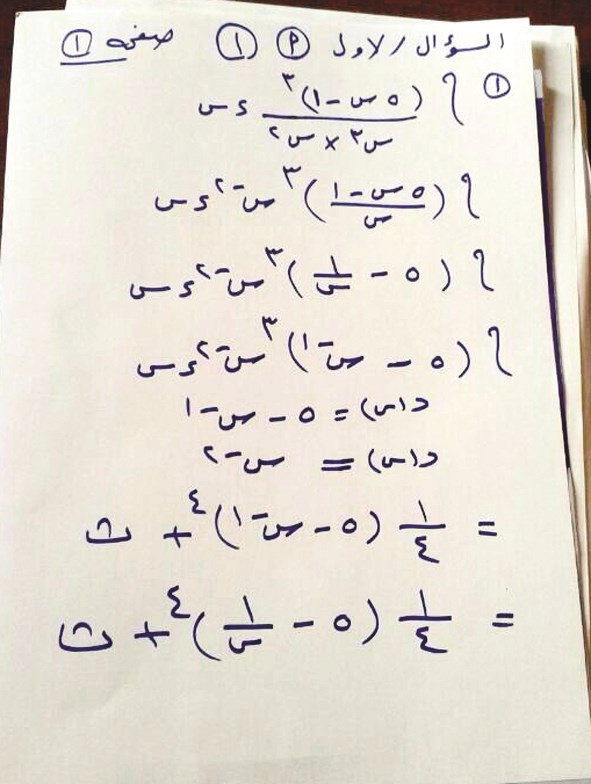 السؤال الاول (P) (١) صفحه (١)
(١) ∫ (٥س - ١)^٣ / (س^٣ × س^٢) ءس
∫ ((٥س - ١)/س)^٣ س^-٢ ءس
∫ (٥ - ١/س)^٣ س^-٢ ءس
∫ (٥ - س^-١)^٣ س^-٢ ءس
د(س) = ٥ - س^-١
د(س) = س^-٢
= ١/٤ (٥ - س^-١)^٤ + ث
= ١/٤ (٥ - ١/س)^٤ + ث